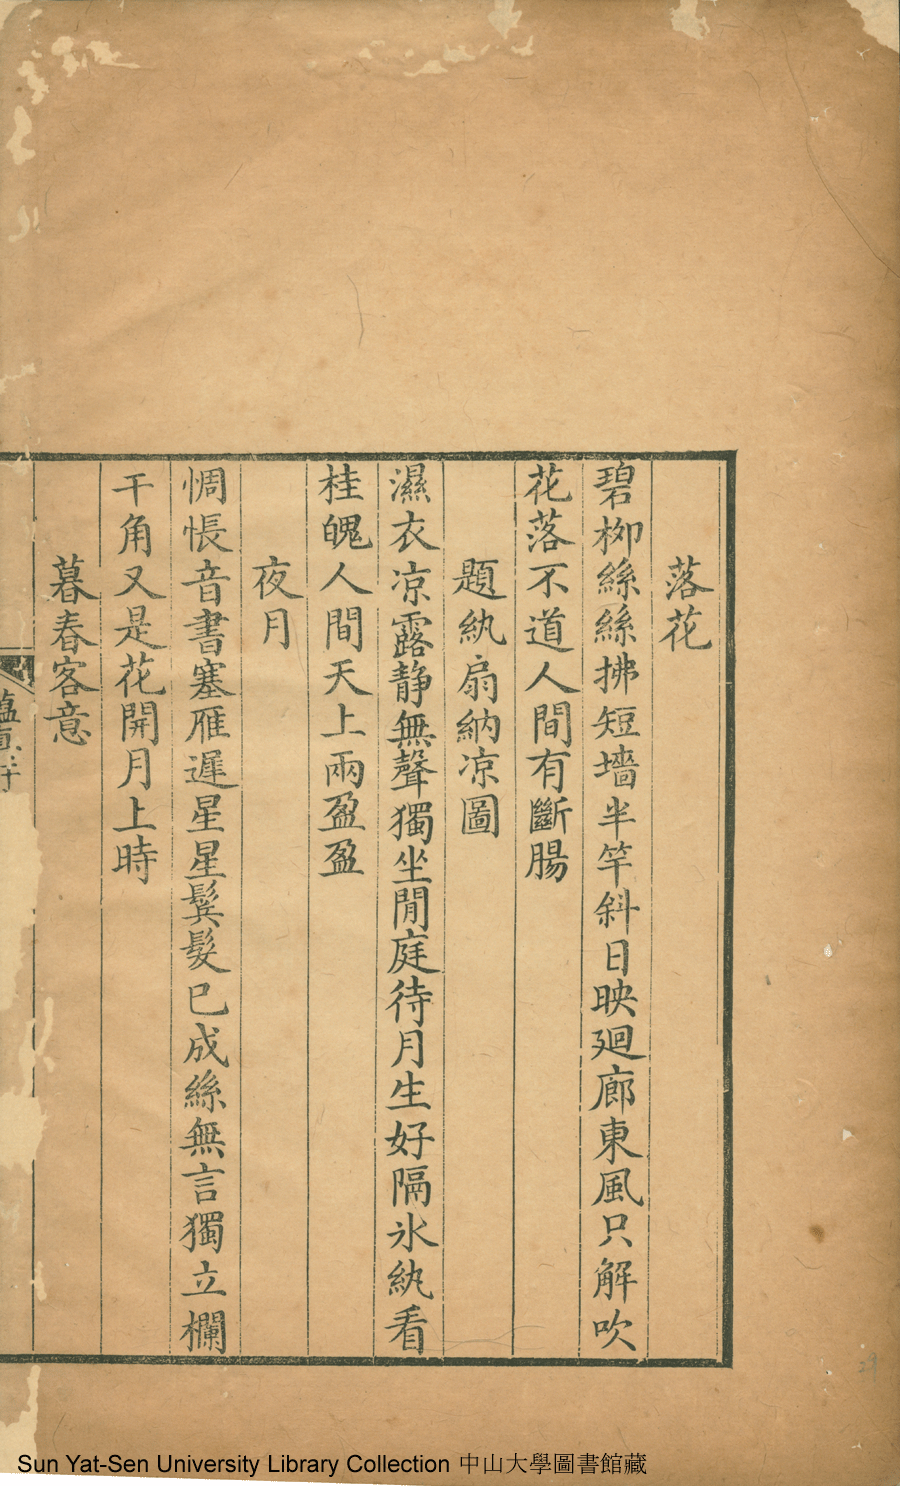 落花
碧栁絲絲拂短墻半竿斜日映廻廊東風只解吹
花落不道人間有斷腸
題紈扇納凉圖
濕衣凉露静無聲獨坐閒庭待月生好隔氷紈看
桂魄人間天上兩盈盈
夜月
惆悵音書塞雁遲星星鬓髮已成絲無言獨立欄
干角又是花開月上時
暮春客意
Sun Yat-Sen University Library Collection 中山大學圖書館藏